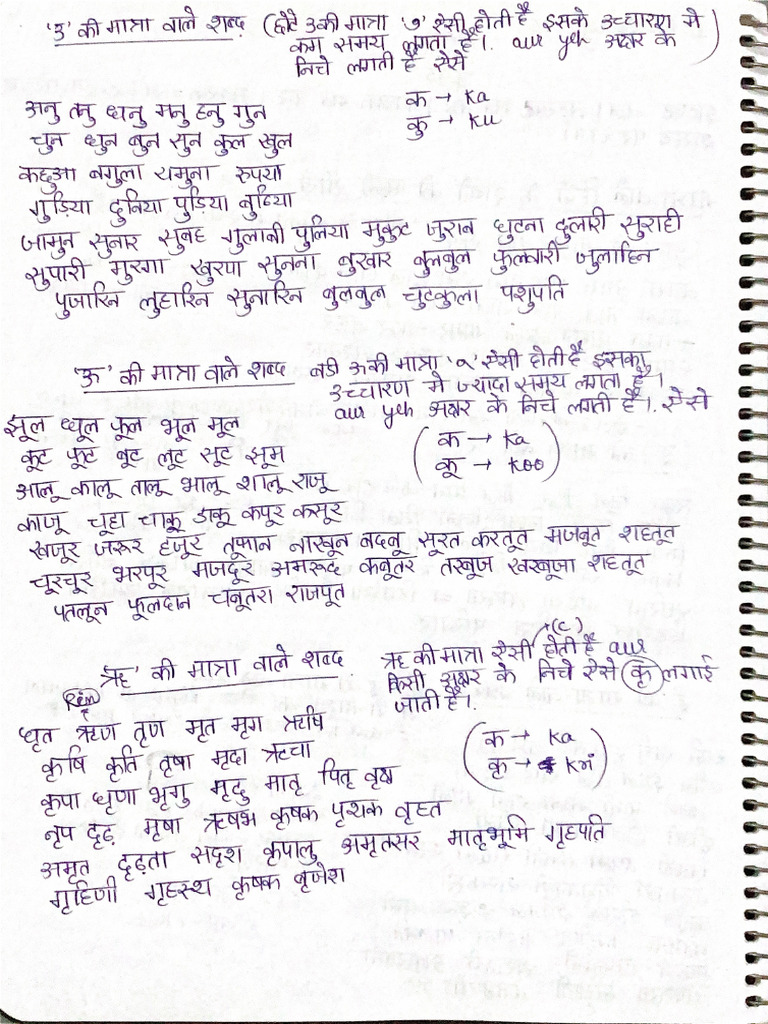 'उ' की मात्रा वाले शब्द (छोटे उ की मात्रा ' ु' ऐसी होती है इसके उच्चारण मे
कम समय लगता है। aur yeh अक्षर के
निचे लगती है ऐसे)
क → ka
कु → ku
अनु तनु धनु मनु हनु गुन
चुन धुन बुन सुन कुल खुल
कछुआ बगुला यमुना रुपया
गुड़िया दुनिया पुडिया बुढिया
जामुन सुनार सुबह गुलाबी पुलिया मुकुट जुराब घुटना दुलारी सुराही
सुपारी मुरगा खुरपा सुनना बुखार बुलबुल फुलवारी जुलाहिन
पुजारिन लुहारिन सुनारिन बुलबुल चुटकुला पशुपति
'ऊ' की मात्रा वाले शब्द बडी ऊ की मात्रा ' ू' ऐसी होती है इसका
उच्चारण मे ज्यादा समय लगता है।
aur yeh अक्षर के निचे लगती है। ऐसे
(क → ka
कू → koo)
झूल धूल फूल भूल मूल
कूट फूट बूट लूट सूट झूम
आलू कालू तालू भालू शालू राजू
काजू चूहा चाकू डाकू कपूर कसूर
खजूर जरूर हजूर तूफान नाखून बदबू सूरत करतूत मजबूत शहतूत
चूरचूर भरपूर मजदूर अमरूद कबूतर तरबूज खरबूजा शहतूत
पतलून फूलदान चबूतरा राजपूत
'ऋ' की मात्रा वाले शब्द ऋ की मात्रा ऐसी (c) होती है aur
किसी अक्षर के निचे ऐसे कृ लगाई
जाती है।
(क → ka
कृ → kri)
घृत ऋण तृण मृत मृग ऋषि
कृषि कृति तृषा मृदा ऋचा
कृपा घृणा भृगु मृदु मातृ पितृ वृक्ष
नृप दृढ़ मृषा ऋषभ कृषक पृथक वृहत
अमृत दृढ़ता सदृश कृपालु अमृतसर मातृभूमि गृहपति
गृहिणी गृहस्थ कृषक बृजेश